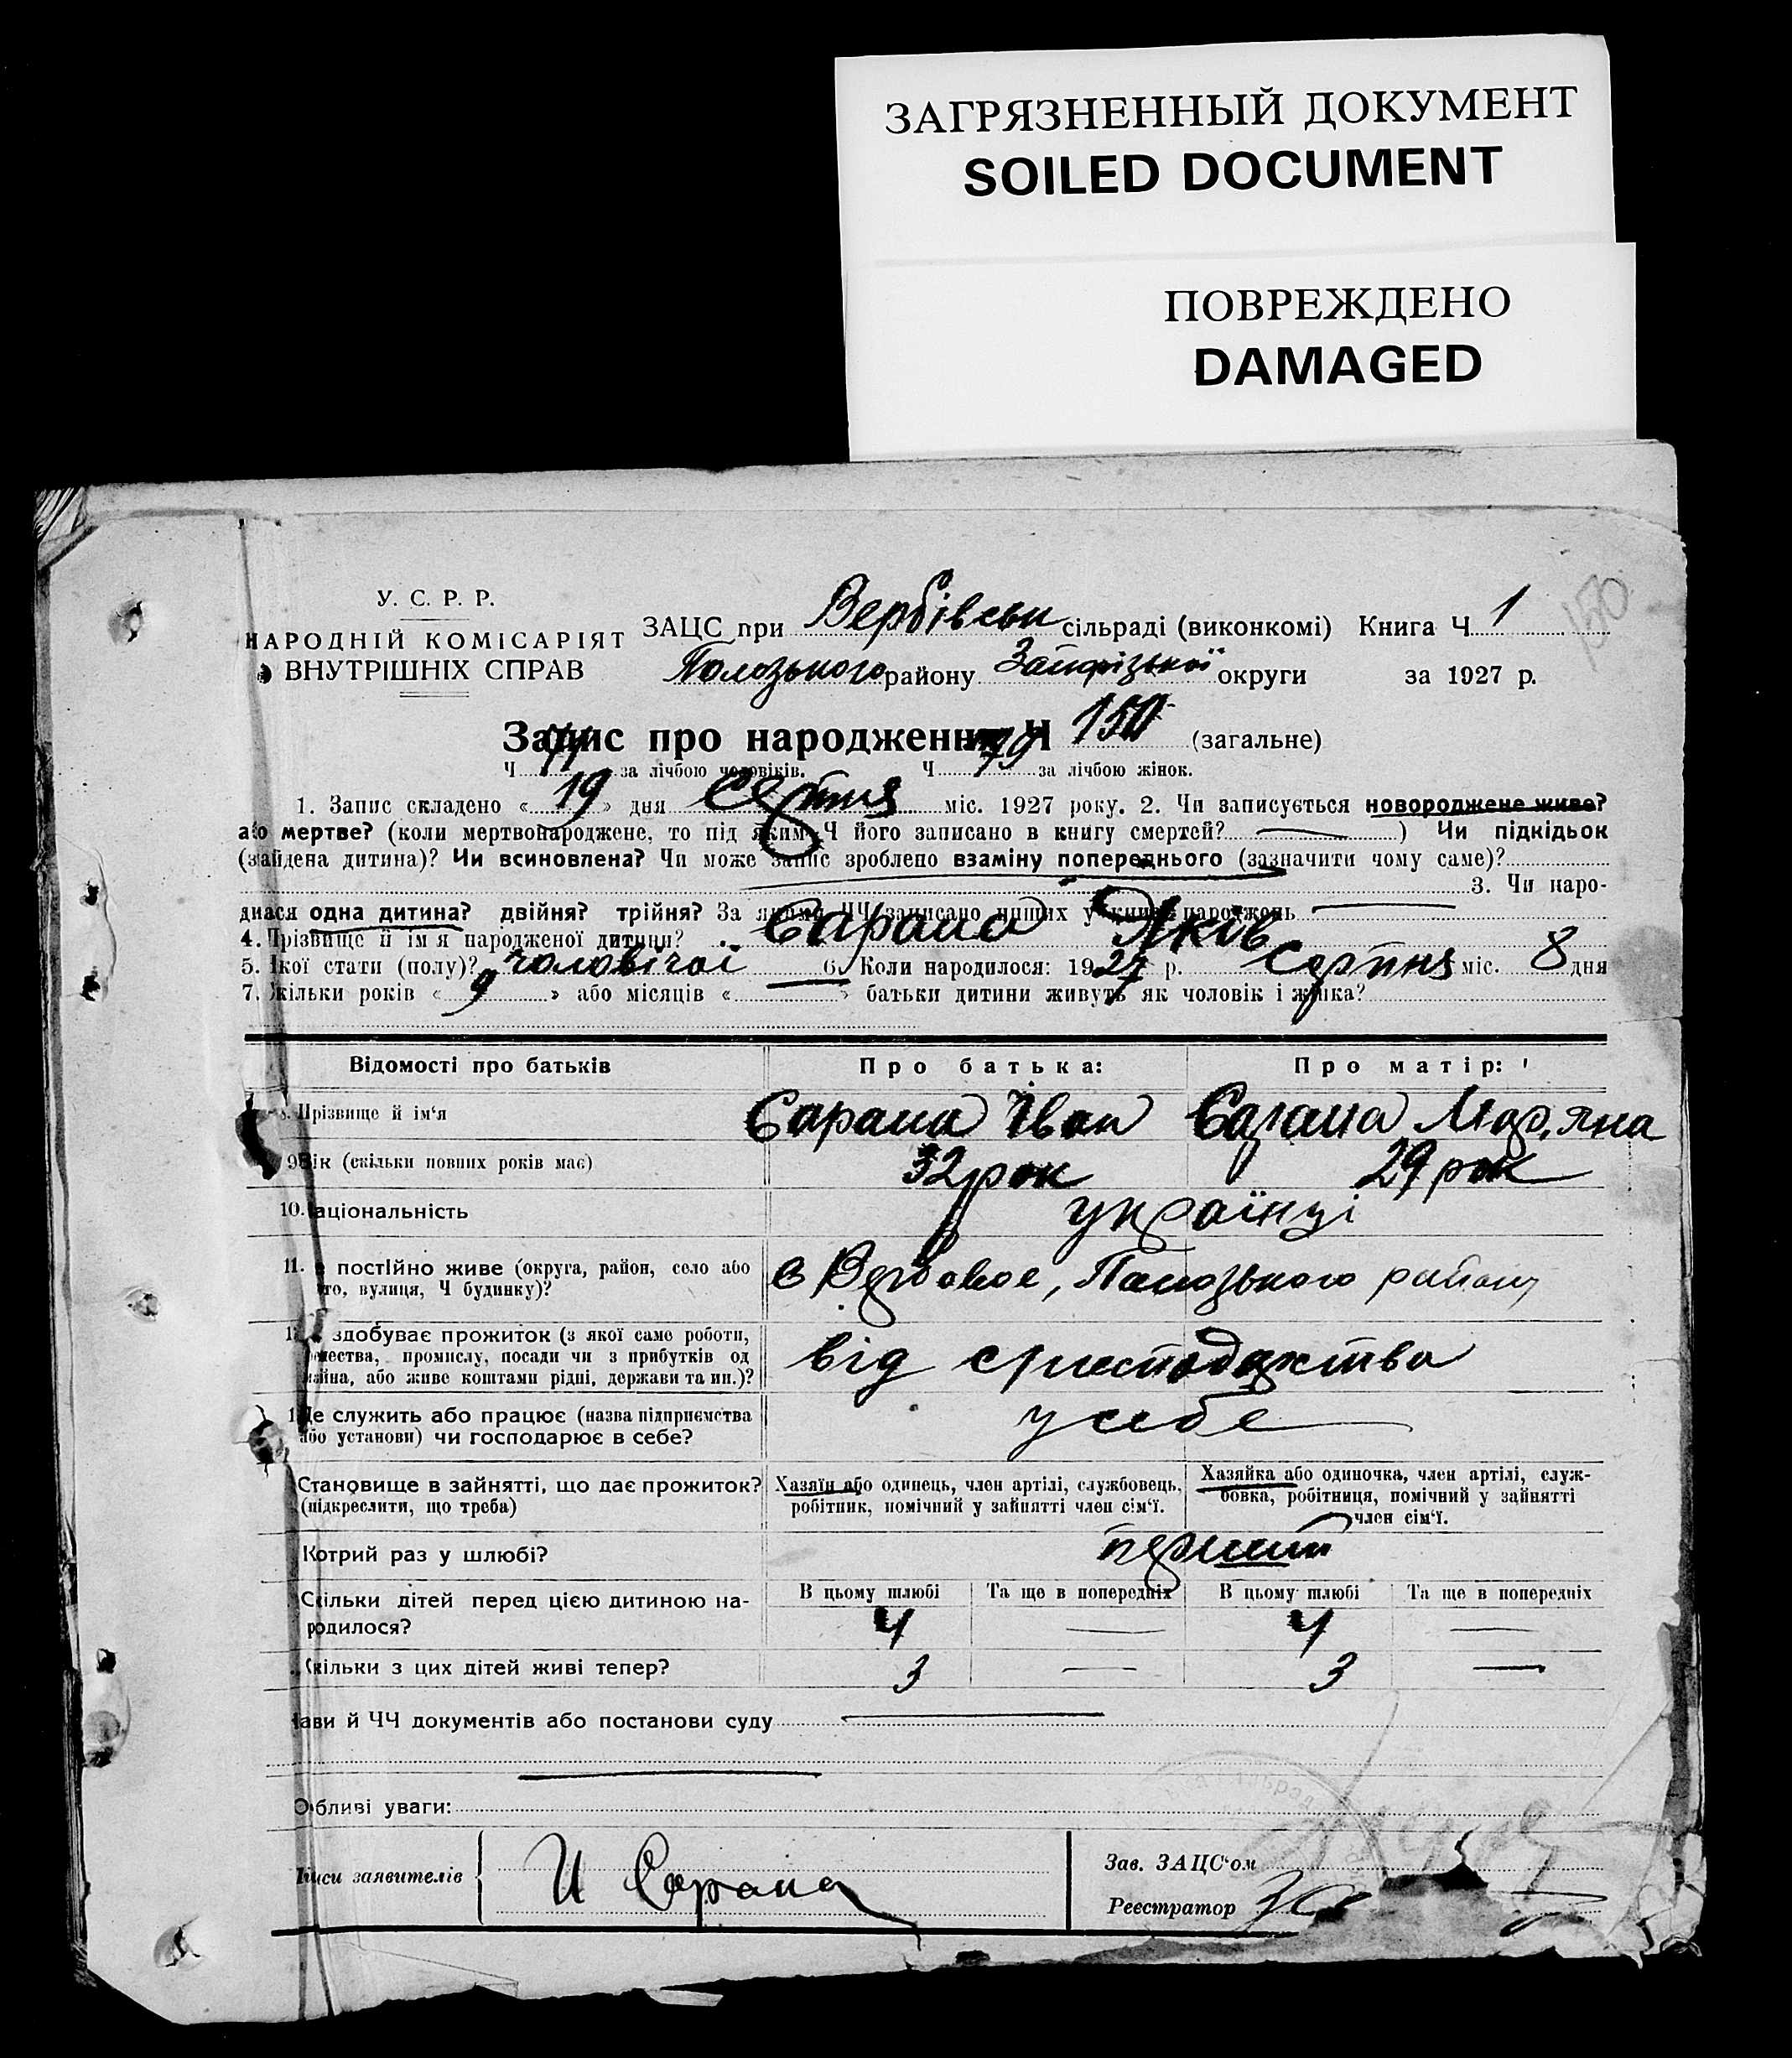 ЗАГРЯЗНЕННЫЙ ДОКУМЕНТ
SOILED DOCUMENT
ПОВРЕЖДЕНО
DAMAGED
150
У. С. Р. Р.
НАРОДНІЙ КОМІСАРІЯТ
ВНУТРІШНІХ СПРАВ
ЗАЦС при Вербівськ сільраді (виконкомі) Книга Ч. 1
Полозького району Запорізької округи за 1927 р.
Запис про народження Ч 150 (загальне)
Ч. 71 за лічбою чоловіків. Ч. 79 за лічбою жінок.
1. Запис складено « 19 » дня Серпня міс. 1927 року. 2. Чи записується новороджене живе?
або мертве? (коли мертвонароджене, то під яким Ч його записано в книгу смертей? ) Чи підкідьок
(знайдена дитина)? Чи всиновлена? Чи може запис зроблено взаміну попереднього (зазначити чому саме)?
3. Чи наро-
дилася одна дитина? двійня? трійня? За якими ЧЧ записано инших у книгу народжень
4. Прізвище й ім'я народженої дитини? Сарана Яків
5. Якої стати (полу)? чоловічої 6. Коли народилося: 1927 р. Серпня міс. 8 дня
7. Скільки років « 9 » або місяців « » батьки дитини живуть як чоловік і жінка?
Відомості про батьків Про батька: Про матір:
8. Прізвище й ім'я Сарана Іван Сарана Мар'яна
9. Вік (скільки повних років має) 32 рок 29 рок
10. Національність українці
11. постійно живе (округа, район, село або с Вербовое, Полозького району
то, вулиця, Ч будинку)?
здобуває прожиток (з якої само роботи, від
промислу, посади чи з прибутків од
майна, або живе коштами рідні, держави та ин.)?
Де служить або працює (назва підприємства у себе
або установи) чи господарює в себе?
Становище в зайнятті, що дає прожиток? Хазяїн або одинець, член артілі, службовець, Хазяйка або одиночка, член артілі, служ-
(підкреслити, що треба) робітник, помічний у зайнятті член сім'ї. бовка, робітниця, помічний у зайнятті
член сім'ї.
Котрий раз у шлюбі? перший
Скільки дітей перед цією дитиною на- В цьому шлюбі Та ще в попередніх В цьому шлюбі Та ще в попередніх
родилося? 4 4
Скільки з цих дітей живі тепер? 3 3
й ЧЧ документів або постанови суду
Особливі уваги:
заявителів И Сарана
Зав. ЗАЦС'ом
Реєстратор